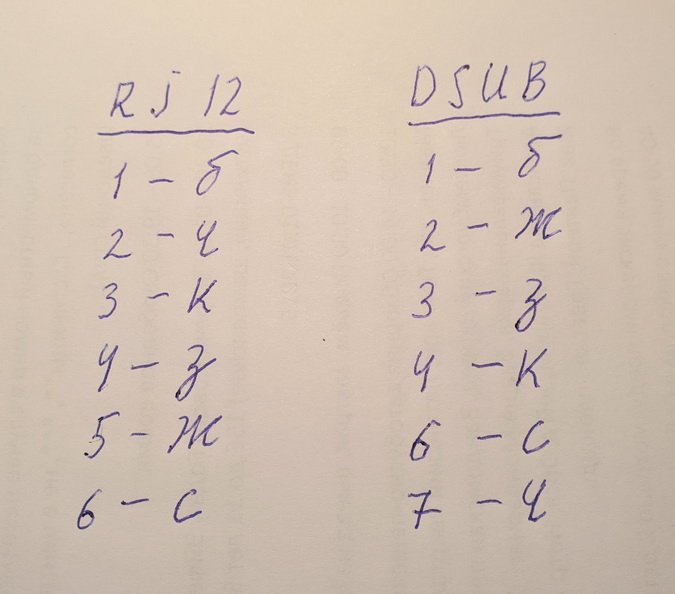 RJ 12
1 - б
2 - ч
3 - К
4 - З
5 - Ж
6 - С
DSUB
1 - б
2 - Ж
3 - З
4 - К
6 - С
7 - Ч